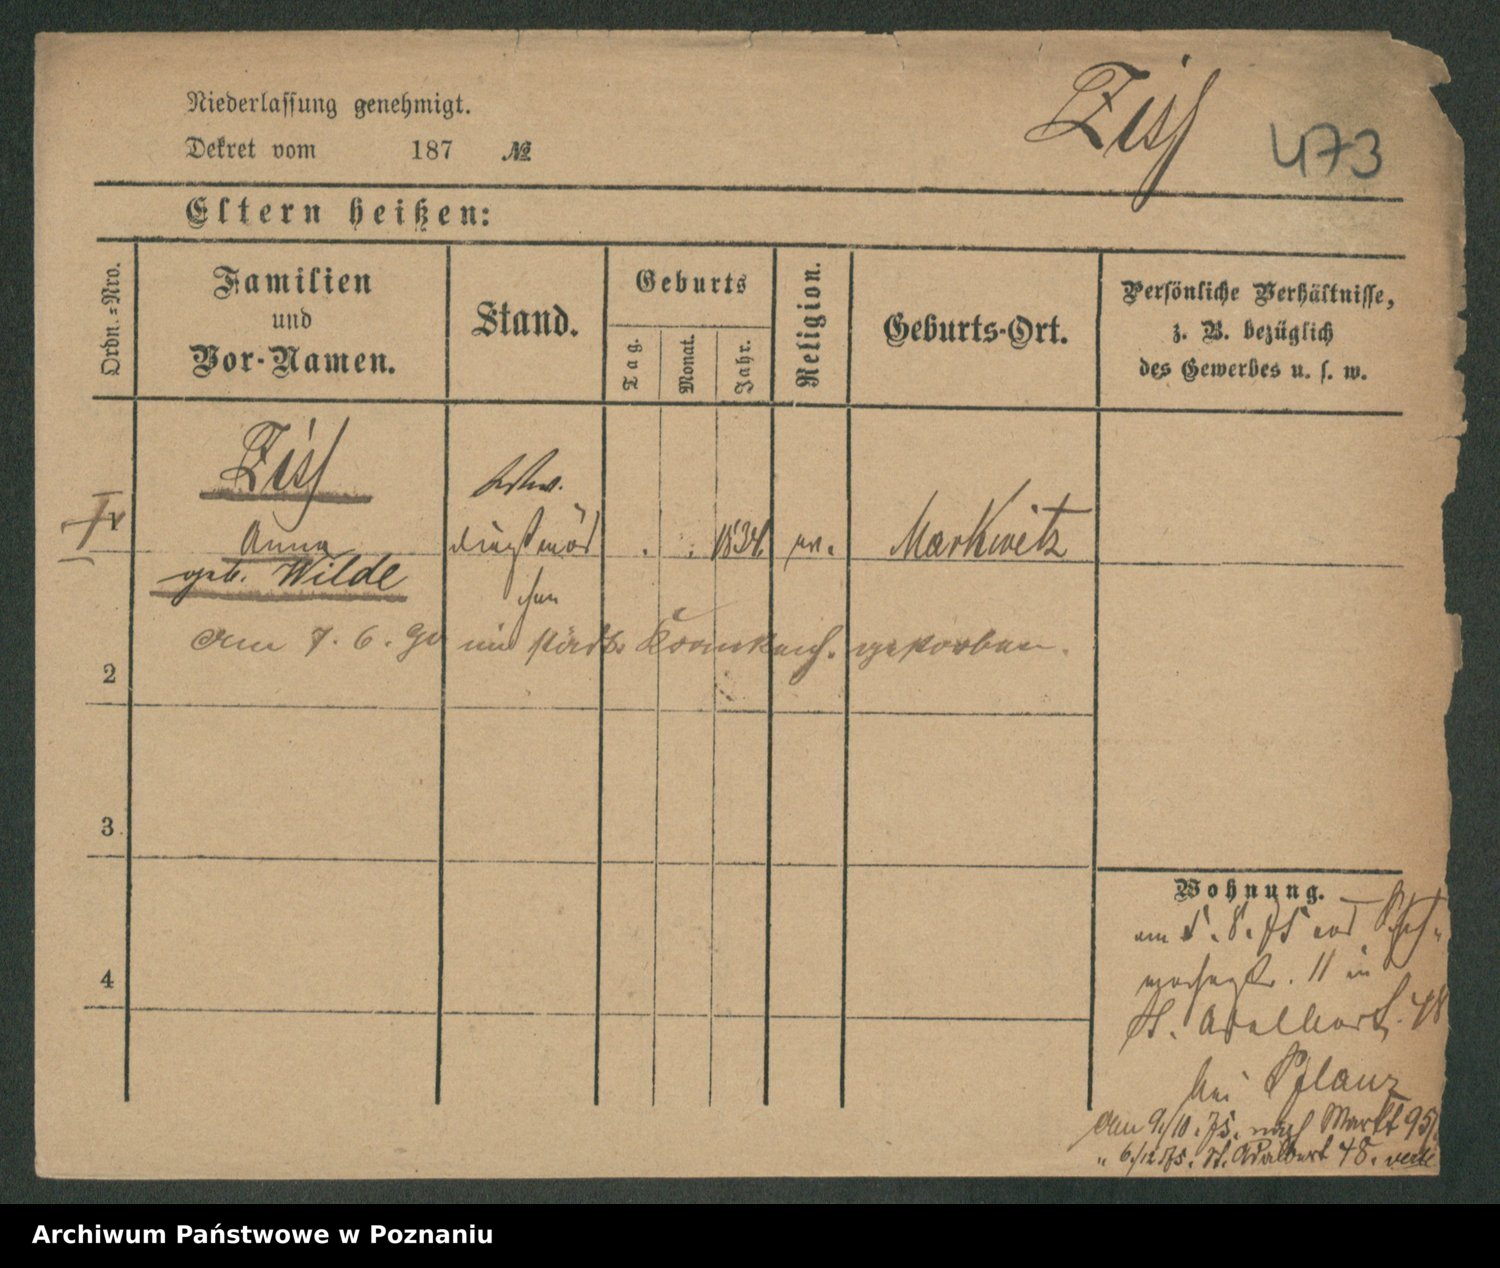 Niederlassung genehmigt.
Dekret vom 187 №
Ziss
473
Eltern heißen:
Ordn.=Nro.
Familien
und
Vor-Namen.
Stand.
Geburts
Tag.
Monat.
Jahr.
Religion.
Geburts-Ort.
Persönliche Verhältnisse,
z. B. bezüglich
des Gewerbes u. s. w.
1
Ziss
Anna
geb. Wilde
1834
ev.
Markwitz
am 7. 6. im städt. gestorben.
2
3
4
Wohnung.
am 5. 8. 75
11 in
St. Adalbert. 48
bei Pflanz
am 9/10. 75. nach Markt 95
" 6/12 75. St. Adalbert 48.
Archiwum Państwowe w Poznaniu